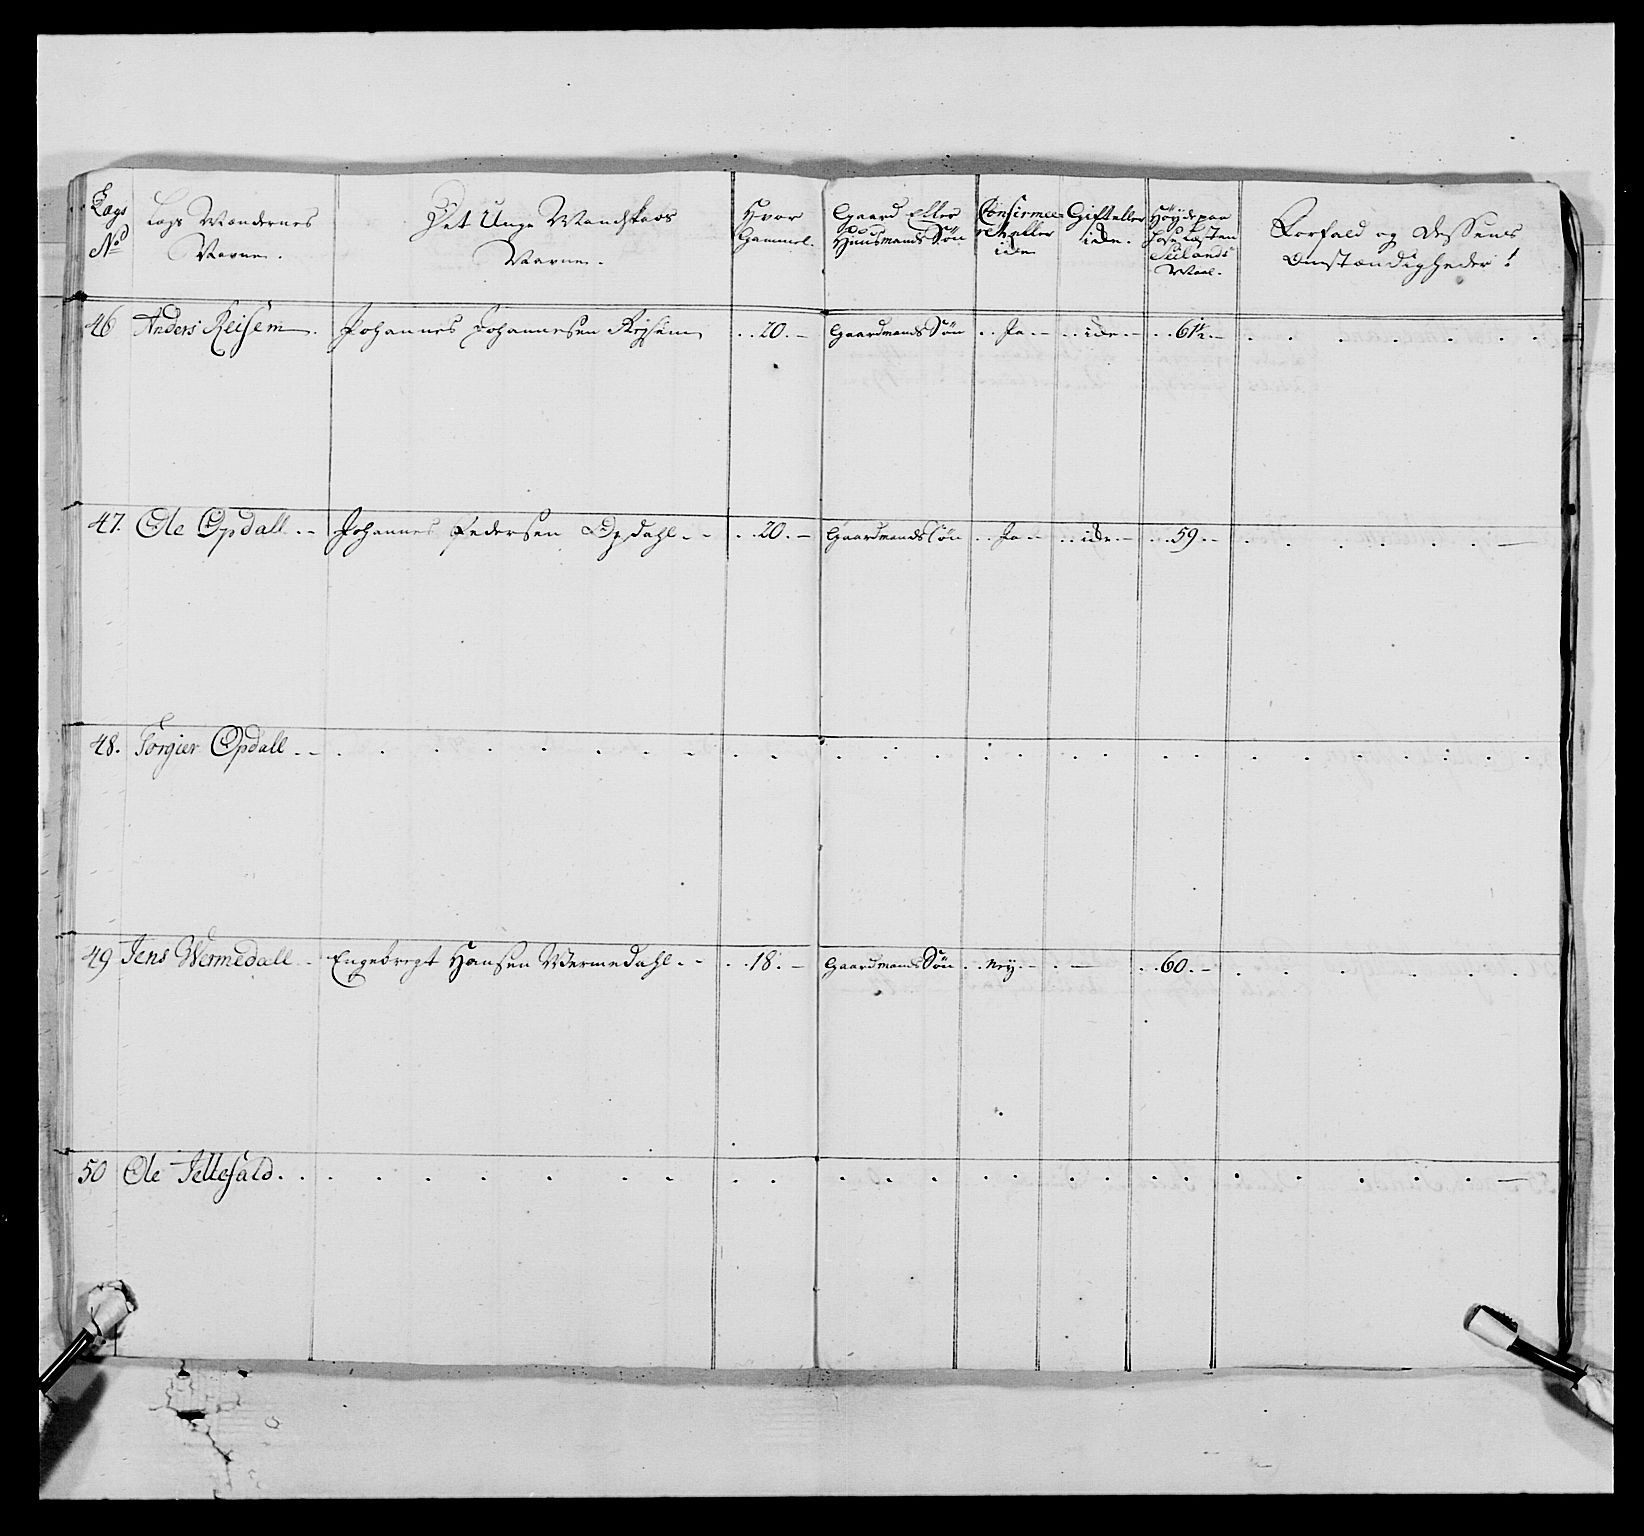 Lægs No
Lægs Mændernes Navne.
Det Unge Mandskabs Navne.
Hvor Gammel.
Gaard Eller Huusmands Søn
Confirmeeret eller icke
Gift eller icke.
Høyde paa Sælands Maal.
Forfald og dessens Omstændigheder!
46 Anders Reisem. Johannes Johannesen Rejsem ..20.- Gaardmands Søn ..Ja.- ..icke.- ..61½.-
47. Ole Opdall.- Johannes Pedersen Opdahl.- ..20.- Gaardmands Søn ..Ja.- ..icke.- ..59.-
48. Torgier Opdall.-
49 Jens Wermedall.- Engebregt Hansen Wermedahl.- ..18.- Gaardmands Søn ..Ney.- ..60.-
50 Ole Jellesald.